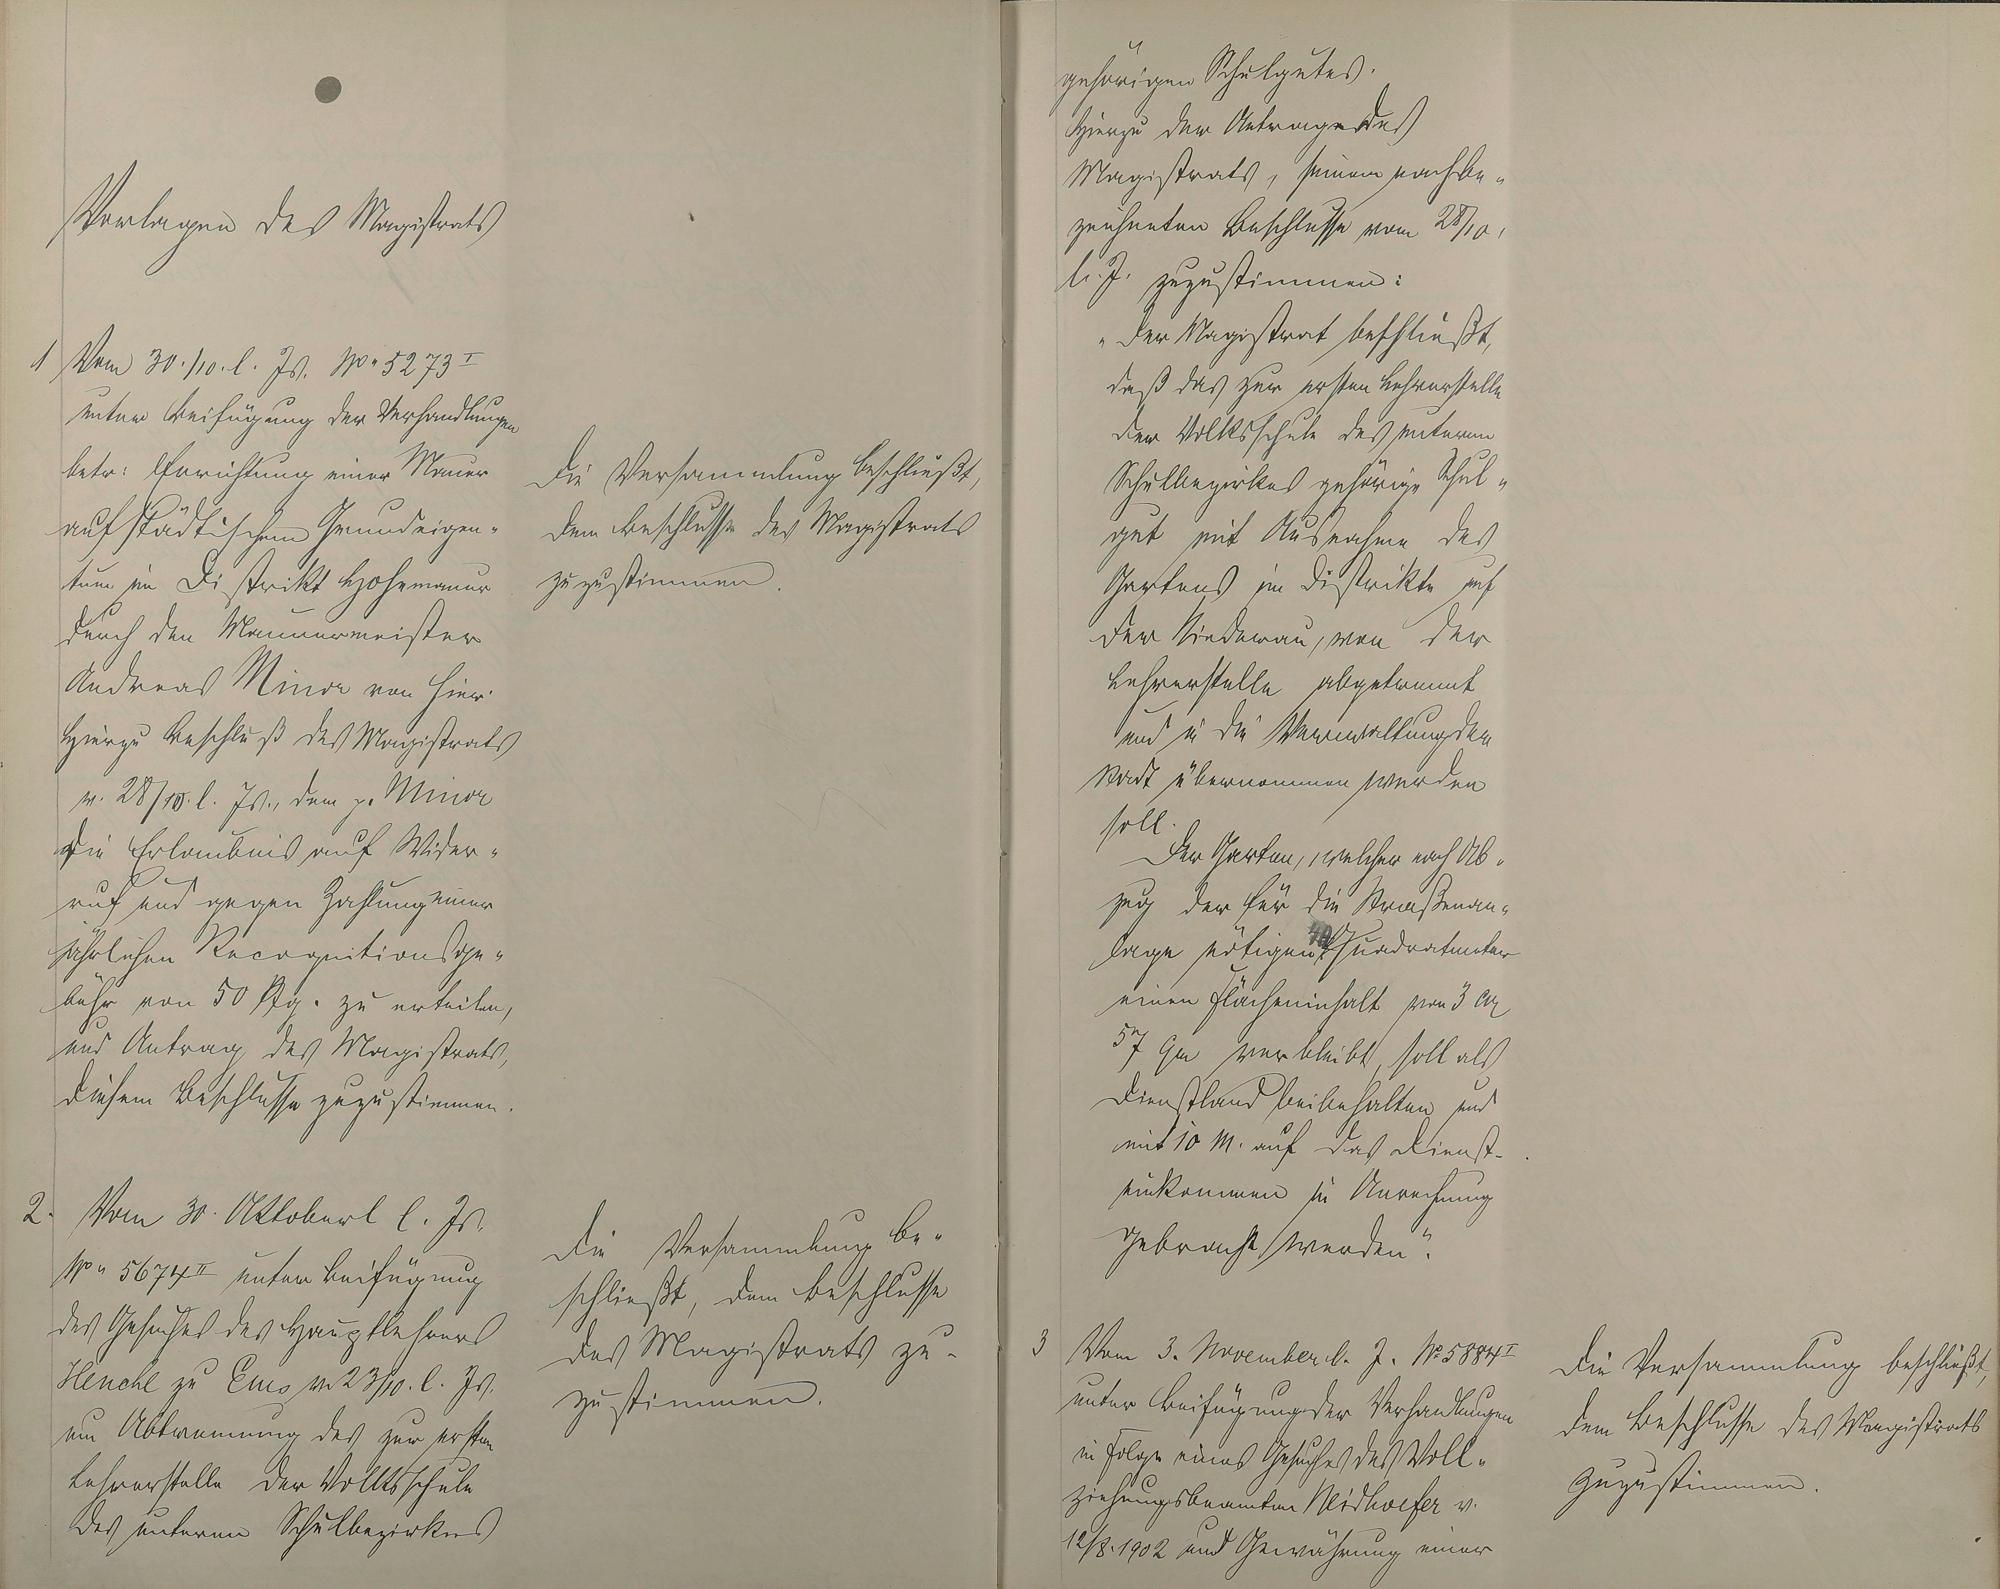 Vorlagen des Magistrats
1 Vom 30./10. l. Js. No 5273 I
unter Beifügung der Verhandlungen
betr: Errichtung einer Mauer
auf städtischem Grundeigen-
tum im Distrikt Hohemauer
durch den Maurermeister
Andreas Minor von hier.
Hierzu Beschluß des Magistrats
v. 28/10. l. Js., dem p. Minor
die Erlaubnis auf Wider-
ruf und gegen Zahlung einer
jährlichen Recognitionsge-
bühr von 50 Pfg. zu erteilen,
und Antrag des Magistrats,
diesem Beschlusse zuzustimmen.
Die Versammlung beschließt,
dem Beschlusse des Magistrats
zuzustimmen.
2. Vom 30. Oktoberl l. Js.
No 5674 II unter Beifügung
des Gesuches des Hauptlehrers
Henche zu Ems v. 23/10. l. Js.
um Abtrennung des zur ersten
Lehrerstelle der Volksschule
des unteren Schulbezirkes
Die Versammlung be-
schließt, dem Beschlusse
des Magistrats zu-
zustimmen.
gehörigen Schulgutes.
Hierzu der Antrag des
Magistrats, seinem nachbe-
zeichneten Beschlusse vom 28/10.
l. J. zuzustimmen:
"Der Magistrat beschließt,
daß das zur ersten Lehrerstelle
der Volksschule des unteren
Schulbezirkes gehörige Schul-
gut mit Ausnahme des
Gartens im Distrikte auf
der Niederau, von der
Lehrerstelle abgetrennt
und in die Verwaltung der
Stadt übernommen werden
soll.
Der Garten, welcher nach Ab-
zug der für die Straßenan-
lage nötigen 40 Quadratmeter
einen Flächeninhalt von 3 ar
57 qm verbleibt, soll als
Dienstland beibehalten und
mit 10 M. auf das Dienst-
einkommen in Anrechnung
gebracht werden".
3 Vom 3. November l. J. No 5884 I
unter Beifügung der Verhandlungen
in Folge eines Gesuches des Voll-
ziehungsbeamten Neidhoefer v.
12/8. 1902 und Gewährung einer
Die Versammlung beschließt,
dem Beschlusse des Magistrats
zuzustimmen.